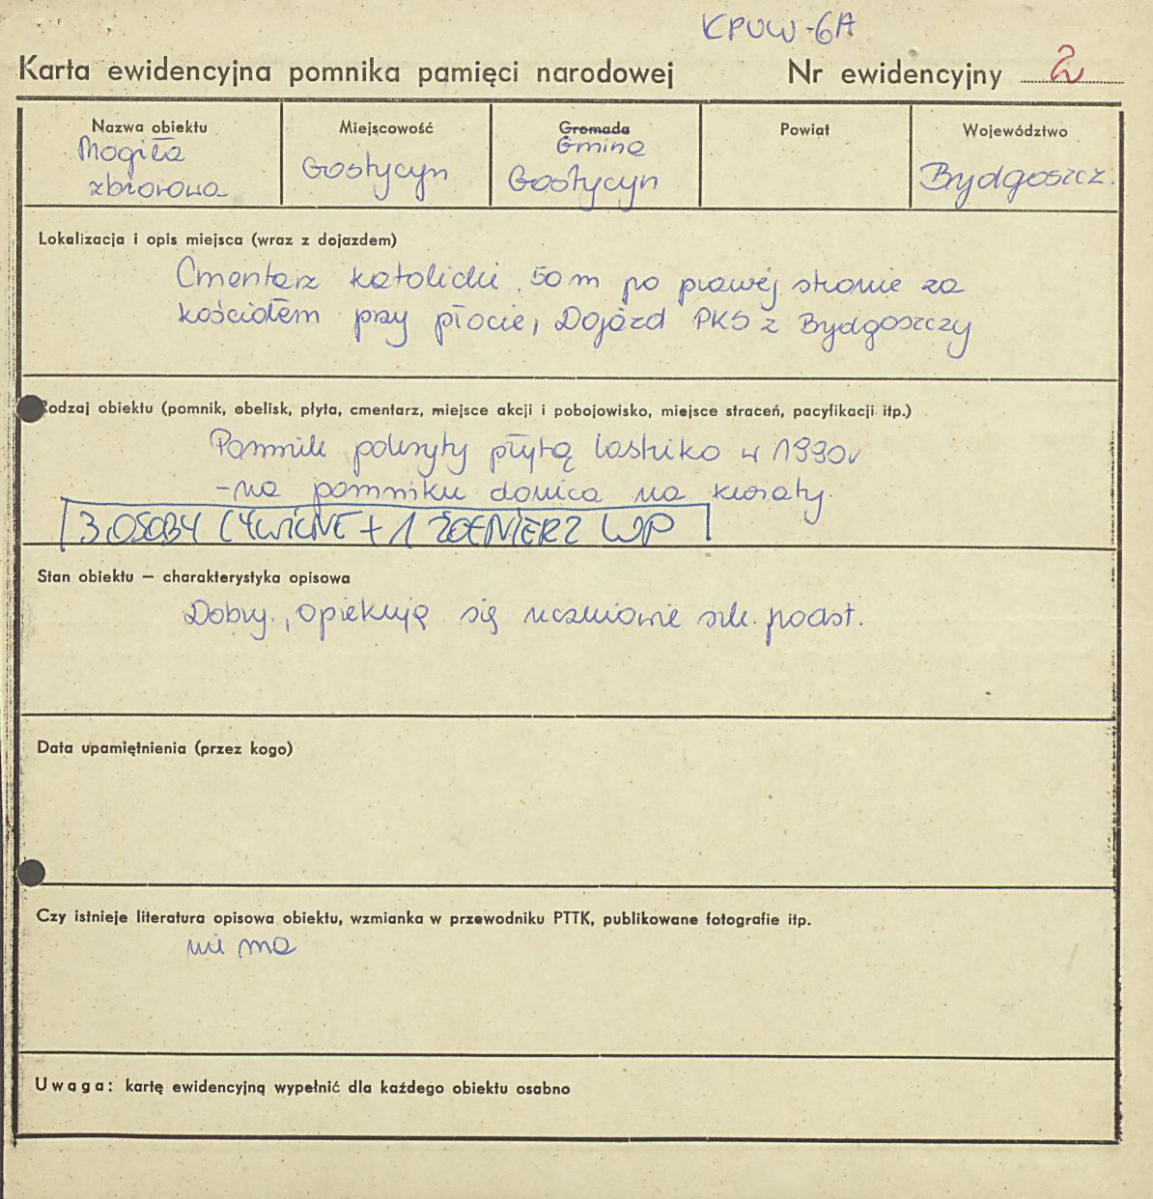 KPUW-6A
Karta ewidencyjna pomnika pamięci narodowej Nr ewidencyjny 2
Nazwa obiektu Miejscowość Gromada Powiat Województwo
Mogiła zbiorowa Gostycyn Gmina Gostycyn Bydgoszcz.
Lokalizacja i opis miejsca (wraz z dojazdem)
Cmentarz katolicki, 50 m po prawej stronie za
kościołem przy płocie, Dojazd PKS z Bydgoszczy
Rodzaj obiektu (pomnik, obelisk, płyta, cmentarz, miejsce akcji i pobojowisko, miejsce straceń, pacyfikacji itp.)
Pomnik pokryty płytą lastriko w 1990r
- na pomniku donica na kwiaty.
3 OSOBY CYWILNE + 1 ŻOŁNIERZ WP
Stan obiektu — charakterystyka opisowa
Dobry, opiekują się uczniowie szk. podst.
Data upamiętnienia (przez kogo)
Czy istnieje literatura opisowa obiektu, wzmianka w przewodniku PTTK, publikowane fotografie itp.
nie ma
Uwaga: kartę ewidencyjną wypełnić dla każdego obiektu osobno